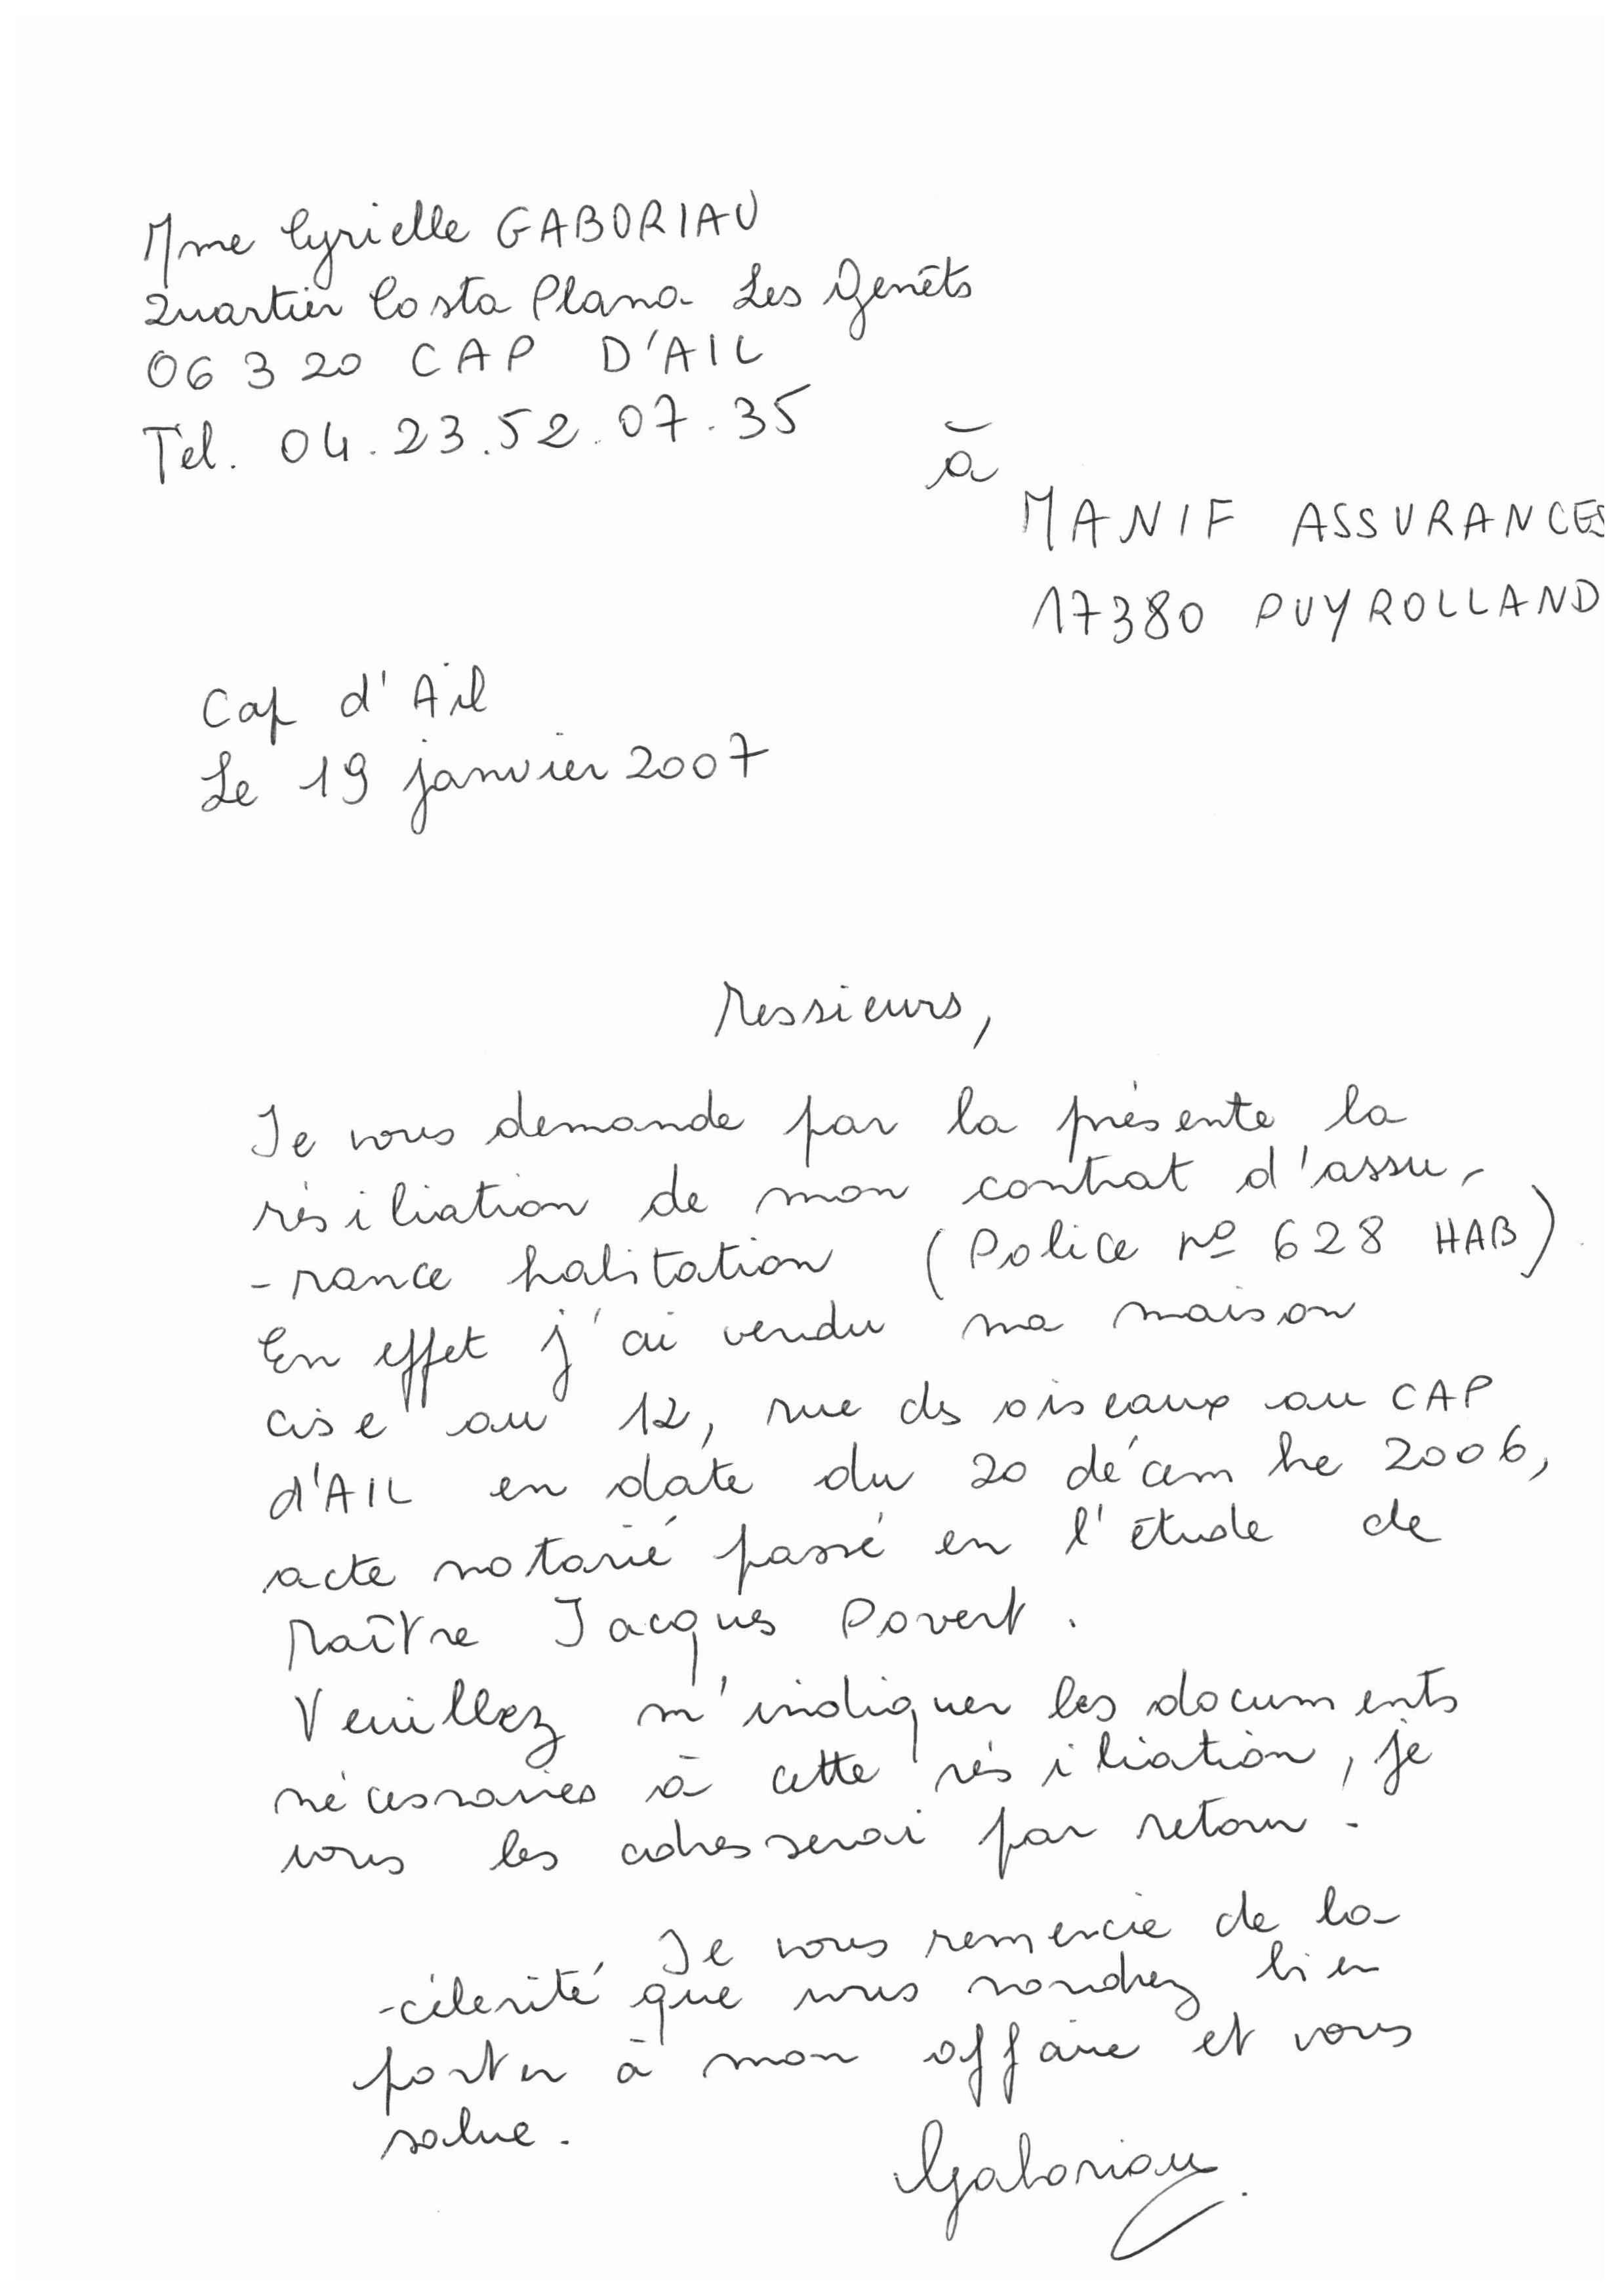 Mme Cyrielle GABORIAU
Quartier Costa Plana Les Genêts
06 320 CAP D'AIL
Tel. 04.23.52.07.35
à
MANIF ASSURANCES
17380 PUYROLLAND
Cap d'Ail
Le 19 janvier 2007
Messieurs,
Je vous demande par la présente la
résiliation de mon contrat d'assu-
-rance habitation (Police nº 628 HAB)
En effet j'ai vendu ma maison
cise au 12, rue des oiseaux au CAP
d'AIL en date du 20 décembre 2006,
acte notarié passé en l'étude de
Maître Jacques Povert.
Veuillez m'indiquer les documents
nécessaires à cette résiliation, je
vous les adresserai par retour.
Je vous remercie de la
-célérité que vous voudrez bien
porter à mon affaire et vous
salue.
Gaboriau